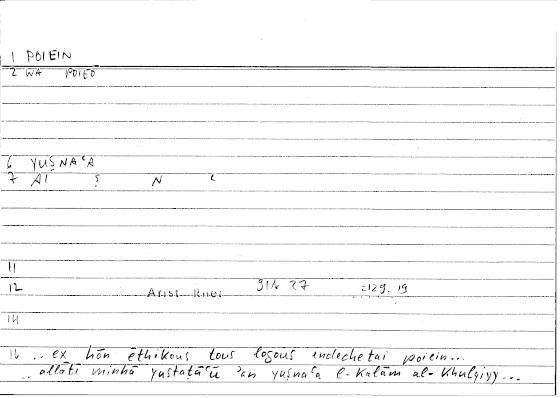 1 POIEIN
2 WA POIEO
6 YUṢNAʿA
7 AI Ṣ N ʿ
11
12 Arist Rhet 91b 27 =129. 19
14
16 .. ex hōn ēthikous tous logous endechetai poiein...
.. allatī minhā yustaṭāʿu ʾan yuṣnaʿa l-Kalām al-Khulqiyy...